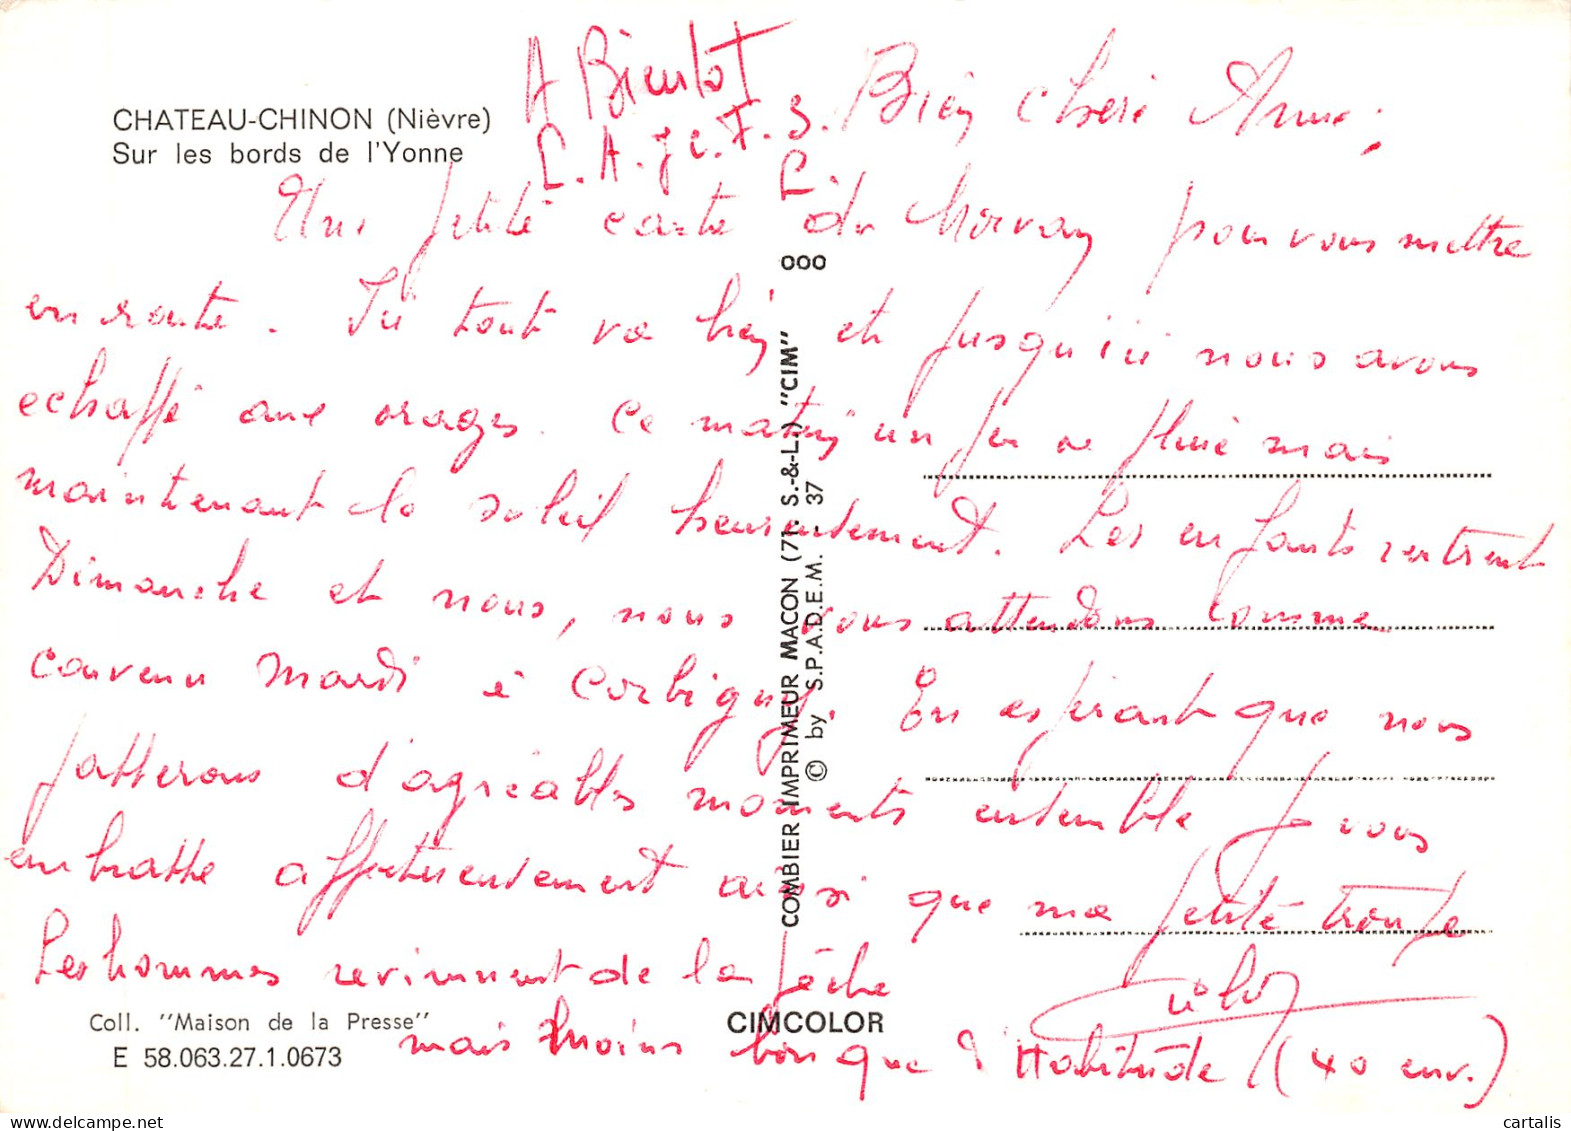 CHATEAU-CHINON (Nièvre)
Sur les bords de l'Yonne
A Bientot
L. A. J C. F. S.
P.
Bien cheri Anne,
Une petite carte du Morvan pour vous mettre
en route. Ici tout va bien et jusqu'ici nous avons
echappé aux orages. Ce matin un peu de pluie mais
maintenant le soleil heureusement. Les enfants rentrent
Dimanche et nous, nous vous attendons comme
convenu Mardi à Corbigny. En espérant que nous
passerons d'agréables moments ensemble je vous
embrasse affectueusement ainsi que ma petite troupe
Les hommes reviennent de la pêche
mais moins bon que d'Habitude (40 env.)
OOO
COMBIER IMPRIMEUR MACON (71. S.-&-L.) "CIM"
© by S.P.A.D.E.M. - 37
Coll. "Maison de la Presse"
E 58.063.27.1.0673
CIMCOLOR
cartalis